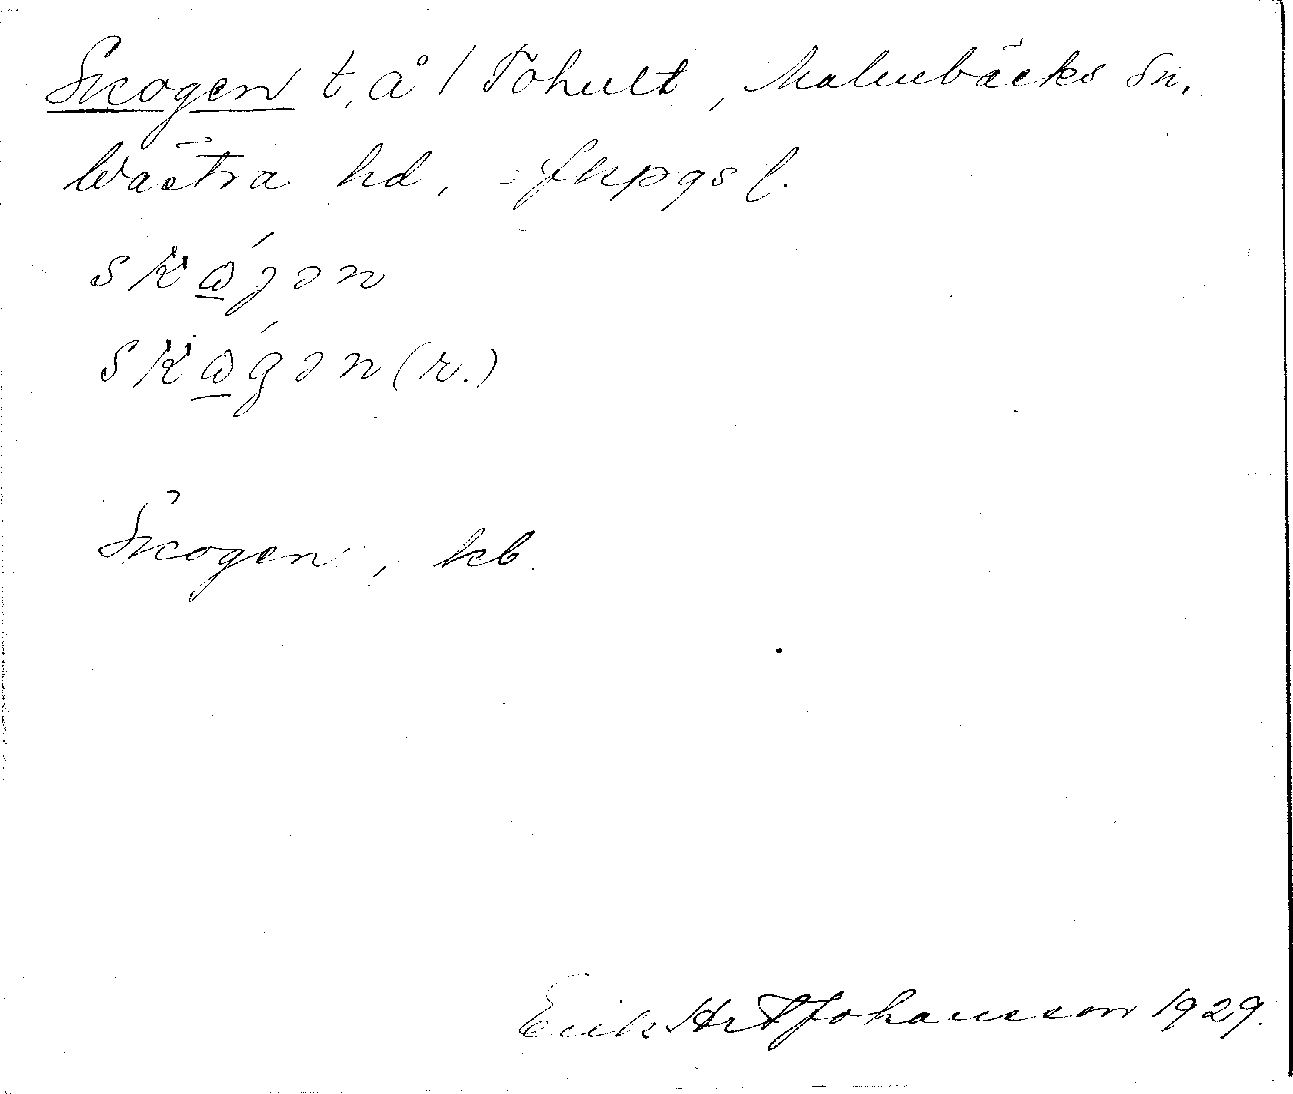 Skogen t, å / Tohult, Malmbäcks sn.
Wästra hd, Jkpgs l.
skώ̲jən
skώ̲gən (r.)
Skogen, kb.
Erik Johansson 1929.